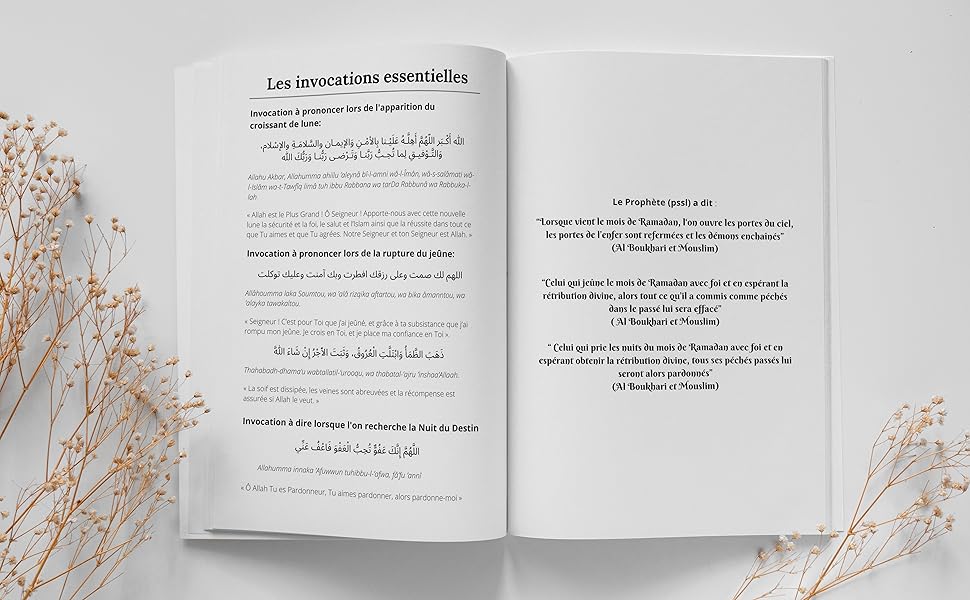 Les invocations essentielles
Invocation à prononcer lors de l'apparition du
croissant de lune:
اللهُ أَكْبَر اللَّهُمَّ أَهِلَّـهُ عَلَيْـنا بِالأمْـنِ وَالإيـمانِ والسَّلامَـةِ والإسْلام،
وَالتَّـوْفيـقِ لِما تُحِـبُّ رَبَّنـا وَتَـرْضـى رَبُّنـا وَرَبُّكَ الله
Allahu Akbar, Allahumma ahillu 'aleynâ bi-l-amni wâ-l-Îmân, wâ-s-salâmati wâ-
l-Islâm wa-t-Tawfîq limâ tuh ibbu Rabbana wa tarDa Rabbunâ wa Rabbuka-l-
lah
« Allah est le Plus Grand ! Ô Seigneur ! Apporte-nous avec cette nouvelle
lune la sécurité et la foi, le salut et l'Islam ainsi que la réussite dans tout ce
que Tu aimes et que Tu agrées. Notre Seigneur et ton Seigneur est Allah. »
Invocation à prononcer lors de la rupture du jeûne:
اللهم لك صمت وعلى رزقك افطرت وبك آمنت وعليك توكلت
Allâhoumma laka Soumtou, wa 'alâ rizqika aftartou, wa bika âmanntou, wa
'alayka tawakaltou.
« Seigneur ! C'est pour Toi que j'ai jeûné, et grâce à ta subsistance que j'ai
rompu mon jeûne. Je crois en Toi, et je place ma confiance en Toi ».
ذَهَبَ الظَّمَأُ وَابْتَلَّتِ الْعُرُوقُ، وَثَبَتَ الأَجْرُ إِنْ شَاءَ اللَّهُ
Thahabadh-dhama'u wabtallatil-'urooqu, wa thabatal-'ajru 'inshaa'Allaah.
« La soif est dissipée, les veines sont abreuvées et la récompense est
assurée si Allah le veut. »
Invocation à dire lorsque l'on recherche la Nuit du Destin
اللَّهُمَّ إِنَّكَ عَفُوٌّ تُحِبُّ الْعَفْوَ فَاعْفُ عَنِّي
Allahumma innaka 'Afuwwun tuhibbu-l-'afwa, fâ'fu 'annî
« Ô Allah Tu es Pardonneur, Tu aimes pardonner, alors pardonne-moi »
Le Prophète (pssl) a dit :
"“Lorsque vient le mois de Ramadan, l'on ouvre les portes du ciel,
les portes de l'enfer sont refermées et les démons enchainés”
(Al Boukhari et Mouslim)
“Celui qui jeûne le mois de Ramadan avec foi et en espérant la
rétribution divine, alors tout ce qu'il a commis comme péchés
dans le passé lui sera effacé”
( Al Boukhari et Mouslim)
“ Celui qui prie les nuits du mois de Ramadan avec foi et en
espérant obtenir la rétribution divine, tous ses péchés passés lui
seront alors pardonnés”
(Al Boukhari et Mouslim)